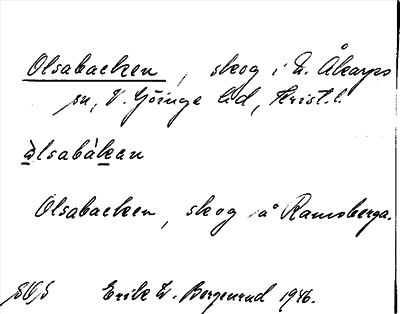 Olsabacken, skog i N. Åkarps
sn, V. Göinge hd, Krist. l.
àlsabàkan
Olsabacken, skog å Ramsberga.
Erik W. Bergenrud 1946.